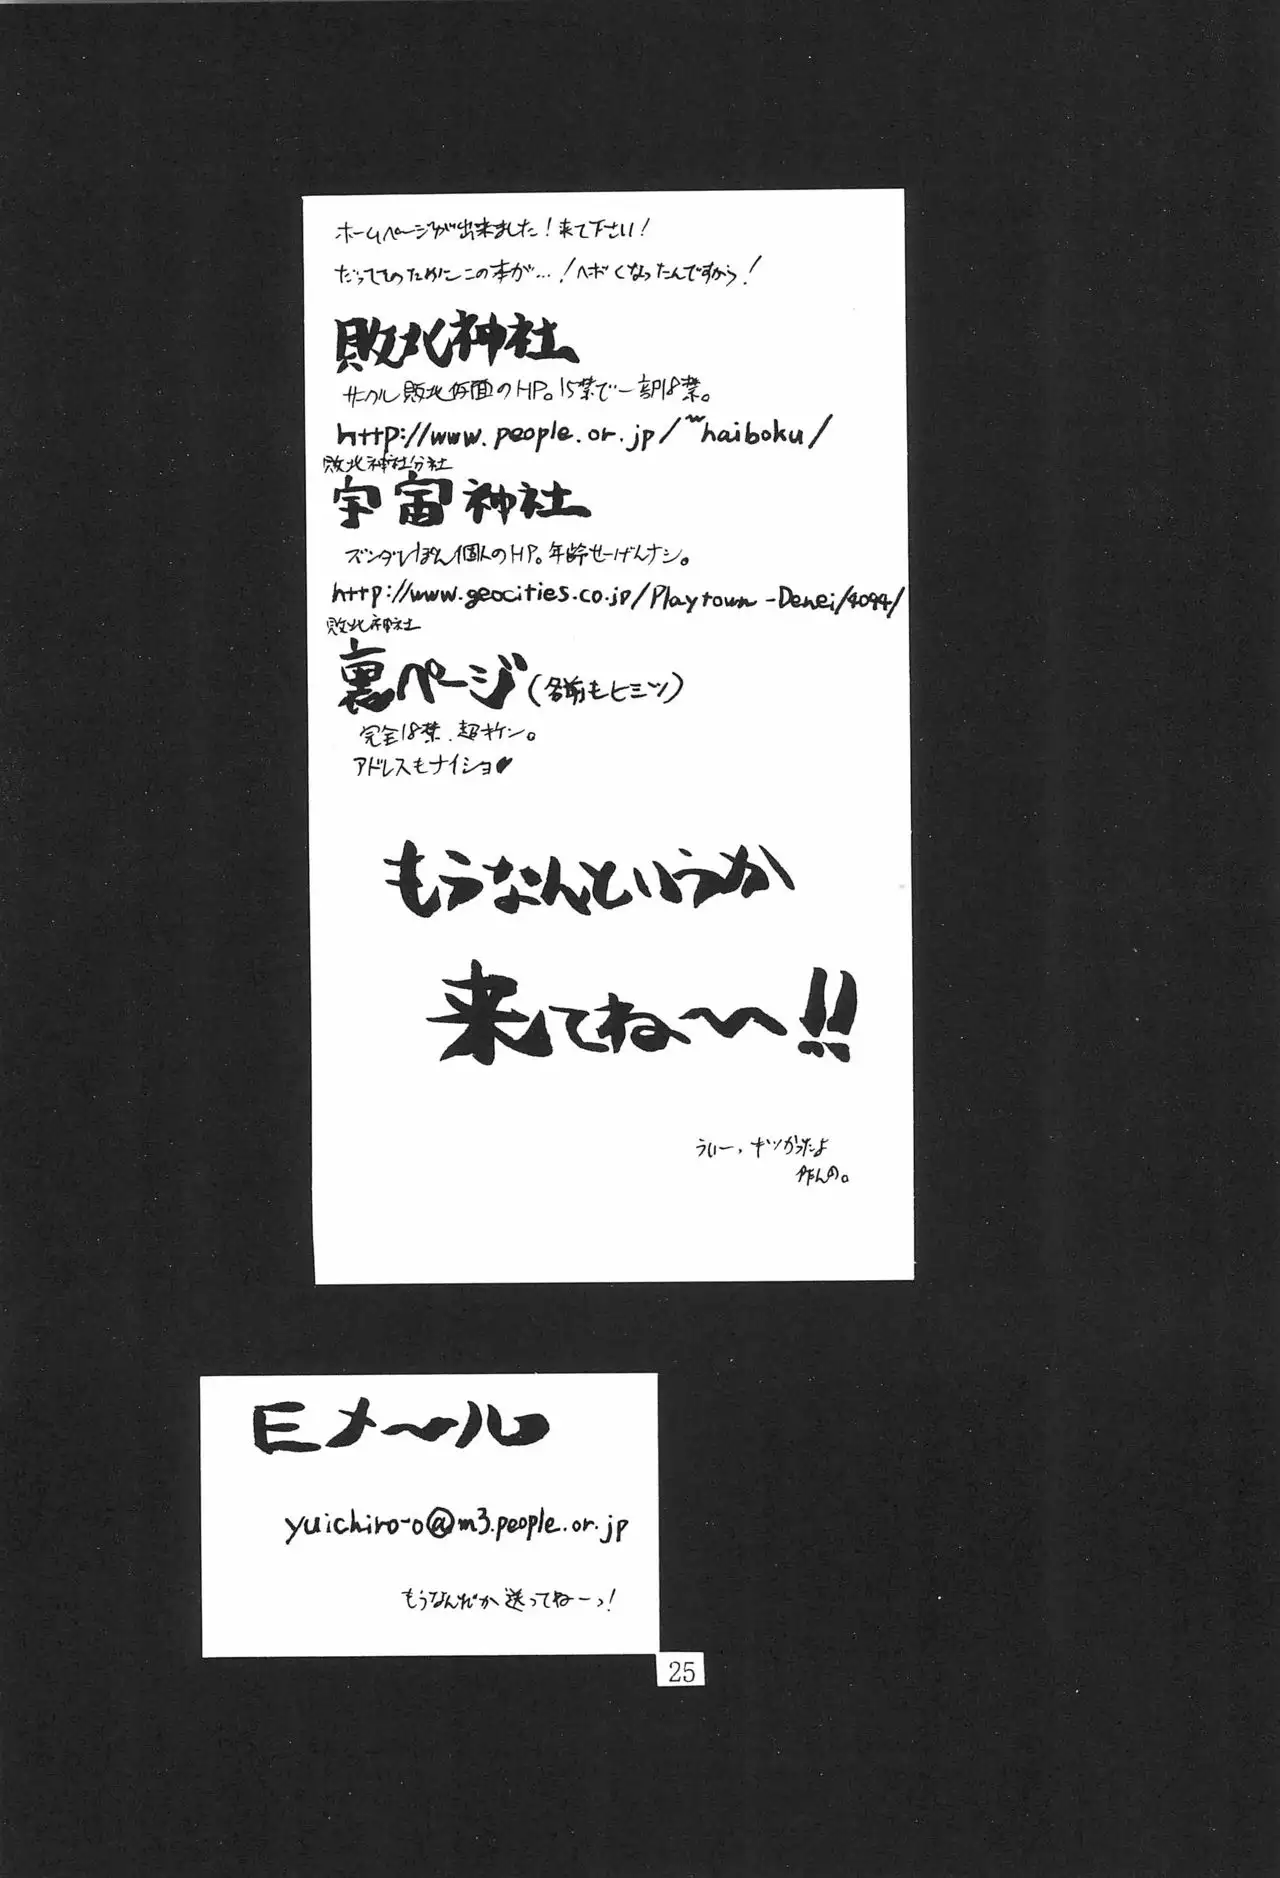 ホームページが出来ました！来て下さい！
だってそのためにこの本が…！ヘボくなったんですから！
敗北神社
サークル敗北仮面のHP。15禁で一部18禁。
http://www.people.or.jp/~haiboku/
敗北神社分社
宇宙神社
ズンダレぽん個人のHP。年齢せーげんナシ。
http://www.geocities.co.jp/Playtown-Denei/4094/
敗北神社
裏ページ（名前もヒミツ）
完全18禁、超キケン。
アドレスもナイショ♥
もうなんというか
来てね〜〜!!
うぃー、キツかったよ
作んの。
Eメール
yuichiro-o@m3.people.or.jp
もうなんだか送ってねーっ！
25